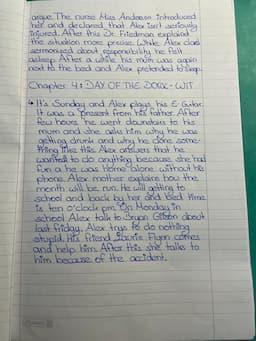 arque. The nurse Miss Anderson introduced
her and declared that Alex isn't seriously
injured. After this Dr. Friedman explained
the situation more precise. While Alex dad
sermonised about responsibility he fell
asleep. After a while his mum was again
next to the bed and Alex pretended to sleep.
Chapter 4: DAY OF THE DORK-WIT
It's Sunday and Alex plays his E-Guitar.
It was a present from his father. After
few hours he went downstairs to his
mum and she asks him why he was
getting drunk and why he done some-
thing like this. Alex answers that he
wanted to do anything because she had
fun a he was Home alone without his
phone. Alex mother explains how the
month will be run. He will getting to
school and back by her and bed time
is ten o'clock pm. On Monday in
school Alex talk to Bryan Gibson about
last friday. Alex trys to do nothing
stupid. His friend Laurie Flynn comes
and help him. After this she talks to
him because of the accident.